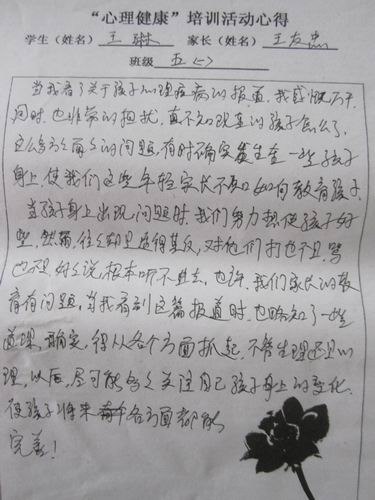 “心理健康”培训活动心得
学生（姓名）王琳 家长（姓名）王友忠
班级 五（一）
当我看了关于孩子心理疾病的报道，我感慨万千，
同时，也非常的担扰，真不知现在的孩子怎么了，
这么多的问题，有时确实发生在一些孩子
身上，使我们这些年轻家长不知如何教育孩子，
当孩子身上出现问题时，我们努力想使孩子好
些，然而，往往却是适得其反，对他们打也不是，骂
也不是，好好说，根本听不进去，也许，我们家长的教
育有问题，当我看到这篇报道时，也略知了一些
道理，确实，得从各个方面抓起，不管生理还是心
理，以后，尽可能多多关注自己孩子身上的变化，
使孩子将来各方面都能
完善！